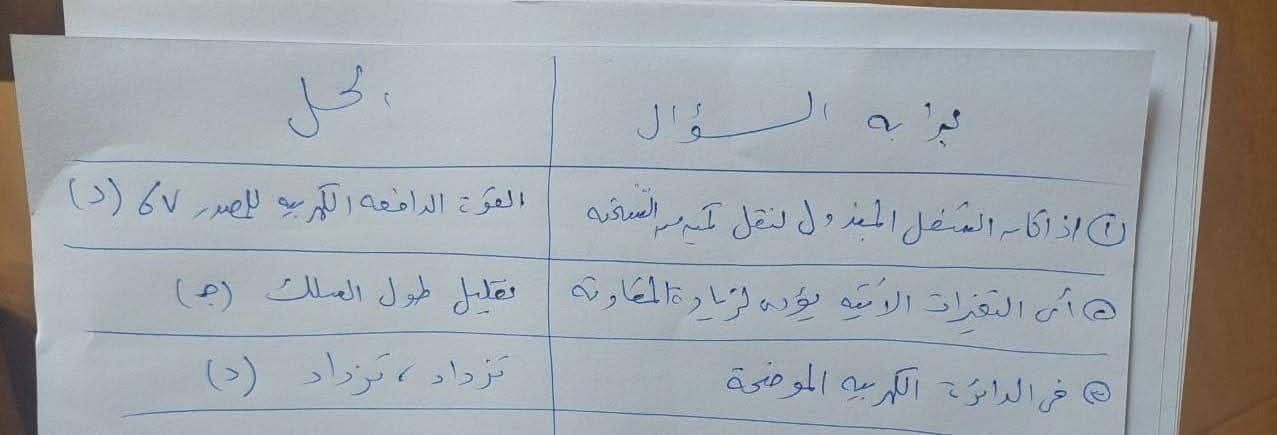 بداية السؤال
الحل
① اذا كان الشغل المبذول لنقل كمية من الشحنة
القوة الدافعه الكهربيه للمصدر 6V (د)
② أى التغيرات الآتيه يؤدى لزيادة المقاومة
تقليل طول السلك (ج)
③ فى الدائرة الكهربيه الموضحة
تزداد ، تزداد (د)